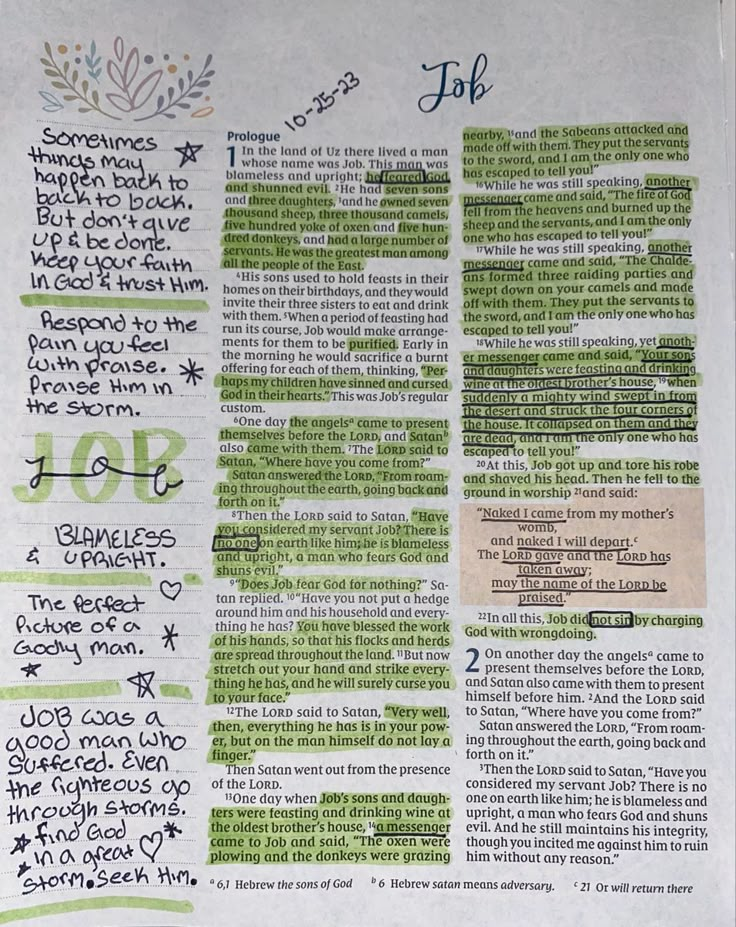 Job
10-25-23
Sometimes
things may
happen back to
back to back.
But don't give
up & be done.
Keep your faith
in God & trust Him.
Respond to the
pain you feel
with praise.
Praise Him in
the storm.
JOB
Job
BLAMELESS
& UPRIGHT.
The Perfect
Picture of a
Godly man.
JOB was a
good man who
suffered. Even
the righteous go
through storms.
find God
in a great
storm. Seek Him.
Prologue
1 In the land of Uz there lived a man
whose name was Job. This man was
blameless and upright; he feared God
and shunned evil. 2He had seven sons
and three daughters, 3and he owned seven
thousand sheep, three thousand camels,
five hundred yoke of oxen and five hun-
dred donkeys, and had a large number of
servants. He was the greatest man among
all the people of the East.
4His sons used to hold feasts in their
homes on their birthdays, and they would
invite their three sisters to eat and drink
with them. 5When a period of feasting had
run its course, Job would make arrange-
ments for them to be purified. Early in
the morning he would sacrifice a burnt
offering for each of them, thinking, “Per-
haps my children have sinned and cursed
God in their hearts.” This was Job's regular
custom.
6One day the angelsa came to present
themselves before the LORD, and Satanb
also came with them. 7The LORD said to
Satan, “Where have you come from?”
Satan answered the LORD, “From roam-
ing throughout the earth, going back and
forth on it.”
8Then the LORD said to Satan, “Have
you considered my servant Job? There is
no one on earth like him; he is blameless
and upright, a man who fears God and
shuns evil.”
9“Does Job fear God for nothing?” Sa-
tan replied. 10“Have you not put a hedge
around him and his household and every-
thing he has? You have blessed the work
of his hands, so that his flocks and herds
are spread throughout the land. 11But now
stretch out your hand and strike every-
thing he has, and he will surely curse you
to your face.”
12The LORD said to Satan, “Very well,
then, everything he has is in your pow-
er, but on the man himself do not lay a
finger.”
Then Satan went out from the presence
of the LORD.
13One day when Job's sons and daugh-
ters were feasting and drinking wine at
the oldest brother's house, 14a messenger
came to Job and said, “The oxen were
plowing and the donkeys were grazing
nearby, 15and the Sabeans attacked and
made off with them. They put the servants
to the sword, and I am the only one who
has escaped to tell you!”
16While he was still speaking, another
messenger came and said, “The fire of God
fell from the heavens and burned up the
sheep and the servants, and I am the only
one who has escaped to tell you!”
17While he was still speaking, another
messenger came and said, “The Chalde-
ans formed three raiding parties and
swept down on your camels and made
off with them. They put the servants to
the sword, and I am the only one who has
escaped to tell you!”
18While he was still speaking, yet anoth-
er messenger came and said, “Your sons
and daughters were feasting and drinking
wine at the oldest brother's house, 19when
suddenly a mighty wind swept in from
the desert and struck the four corners of
the house. It collapsed on them and they
are dead, and I am the only one who has
escaped to tell you!”
20At this, Job got up and tore his robe
and shaved his head. Then he fell to the
ground in worship 21and said:
“Naked I came from my mother's
womb,
and naked I will depart.c
The LORD gave and the LORD has
taken away;
may the name of the LORD be
praised.”
22In all this, Job did not sin by charging
God with wrongdoing.
2 On another day the angelsa came to
present themselves before the LORD,
and Satan also came with them to present
himself before him. 2And the LORD said
to Satan, “Where have you come from?”
Satan answered the LORD, “From roam-
ing throughout the earth, going back and
forth on it.”
3Then the LORD said to Satan, “Have
you considered my servant Job? There is
no one on earth like him; he is blameless and
upright, a man who fears God and shuns
evil. And he still maintains his integrity,
though you incited me against him to ruin
him without any reason.”
a 6,1 Hebrew the sons of God b 6 Hebrew satan means adversary. c 21 Or will return there